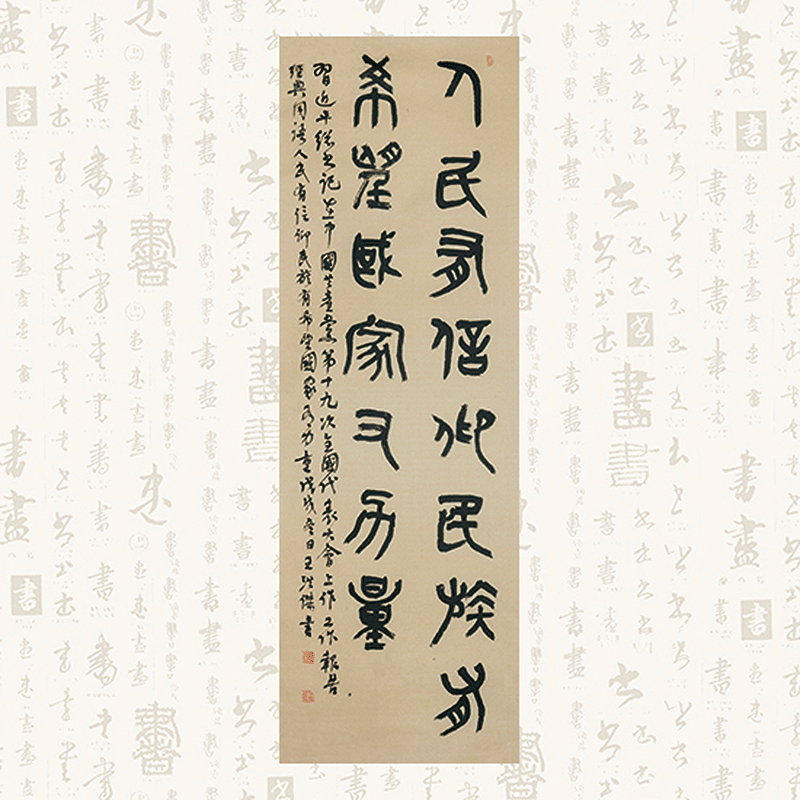 人民有信仰民族有
希望國家有力量
習近平總書記在中國共產黨第十九次全國代表大會上作工作報告
經典用語人民有信仰民族有希望國家有力量戊戌冬日王傑書